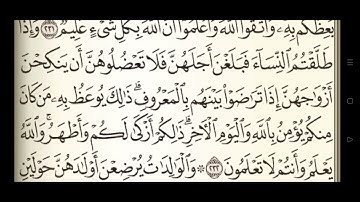 يَعِظُكُم بِهِۦ وَٱتَّقُوا۟ ٱللَّهَ وَٱعْلَمُوٓا۟ أَنَّ ٱللَّهَ بِكُلِّ شَىْءٍ عَلِيمٌ ٢٣١ وَإِذَا
طَلَّقْتُمُ ٱلنِّسَآءَ فَبَلَغْنَ أَجَلَهُنَّ فَلَا تَعْضُلُوهُنَّ أَن يَنكِحْنَ
أَزْوَٰجَهُنَّ إِذَا تَرَٰضَوْا۟ بَيْنَهُم بِٱلْمَعْرُوفِ ۗ ذَٰلِكَ يُوعَظُ بِهِۦ مَن كَانَ
مِنكُمْ يُؤْمِنُ بِٱللَّهِ وَٱلْيَوْمِ ٱلْـَٔاخِرِ ۗ ذَٰلِكُمْ أَزْكَىٰ لَكُمْ وَأَطْهَرُ ۗ وَٱللَّهُ
يَعْلَمُ وَأَنتُمْ لَا تَعْلَمُونَ ٢٣٢ ۞ وَٱلْوَٰلِدَٰتُ يُرْضِعْنَ أَوْلَٰدَهُنَّ حَوْلَيْنِ